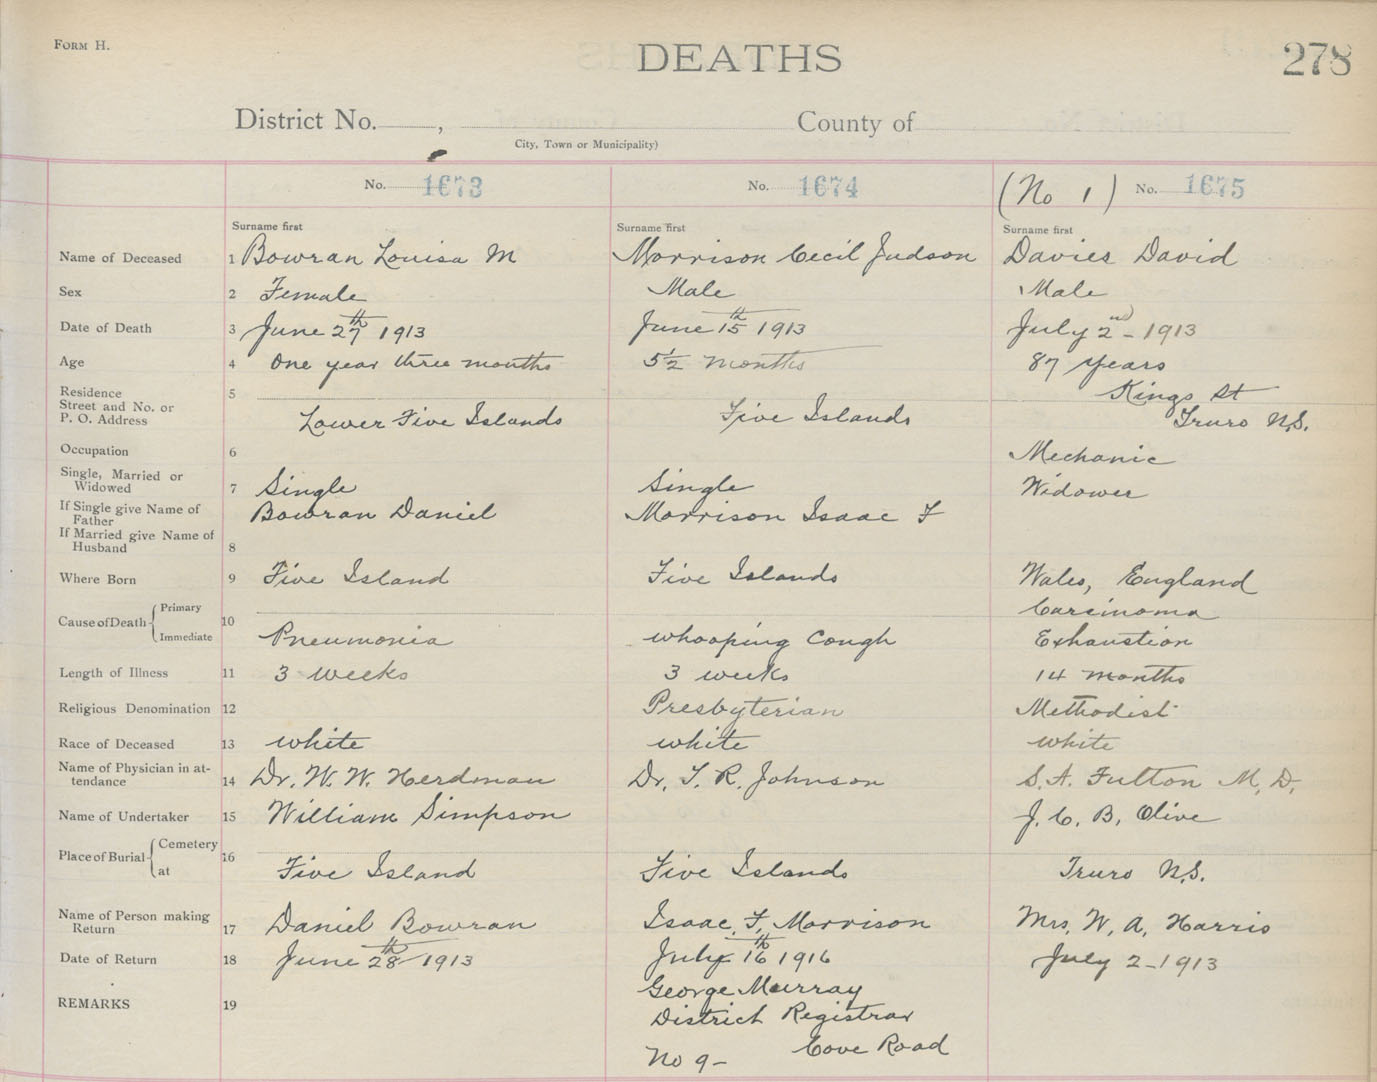 FORM H.
DEATHS
278
District No. , County of
City, Town or Municipality)
No. 1673 No. 1674 (No 1) No. 1675
Surname first Surname first Surname first
Name of Deceased 1 Bowran Louisa M Morrison Cecil Judson Davies David
Sex 2 Female Male Male
Date of Death 3 June 27th 1913 June 15th 1913 July 2nd - 1913
Age 4 One year three months 5 1/2 months 87 years
Residence 5 Kings St
Street and No. or
P. O. Address Lower Five Islands Five Islands Truro N.S.
Occupation 6 Mechanic
Single, Married or
Widowed 7 Single Single Widower
If Single give Name of
Father Bowran Daniel Morrison Isaac F
If Married give Name of
Husband 8
Where Born 9 Five Island Five Islands Wales, England
Cause of Death Primary 10 Carcinoma
Immediate Pneumonia whooping Cough Exhaustion
Length of Illness 11 3 weeks 3 weeks 14 months
Religious Denomination 12 Presbyterian Methodist
Race of Deceased 13 white white white
Name of Physician in at-
tendance 14 Dr. W. W. Herdman Dr. T. R. Johnson S. A. Fulton M. D.
Name of Undertaker 15 William Simpson J. C. B. Olive
Place of Burial Cemetery 16
at Five Island Five Islands Truro N.S.
Name of Person making
Return 17 Daniel Bowran Isaac F. Morrison Mrs. W. A. Harris
Date of Return 18 June 28th 1913 July 16th 1916 July 2 - 1913
REMARKS 19 George Murray
District Registrar
Cove Road
No 9 -